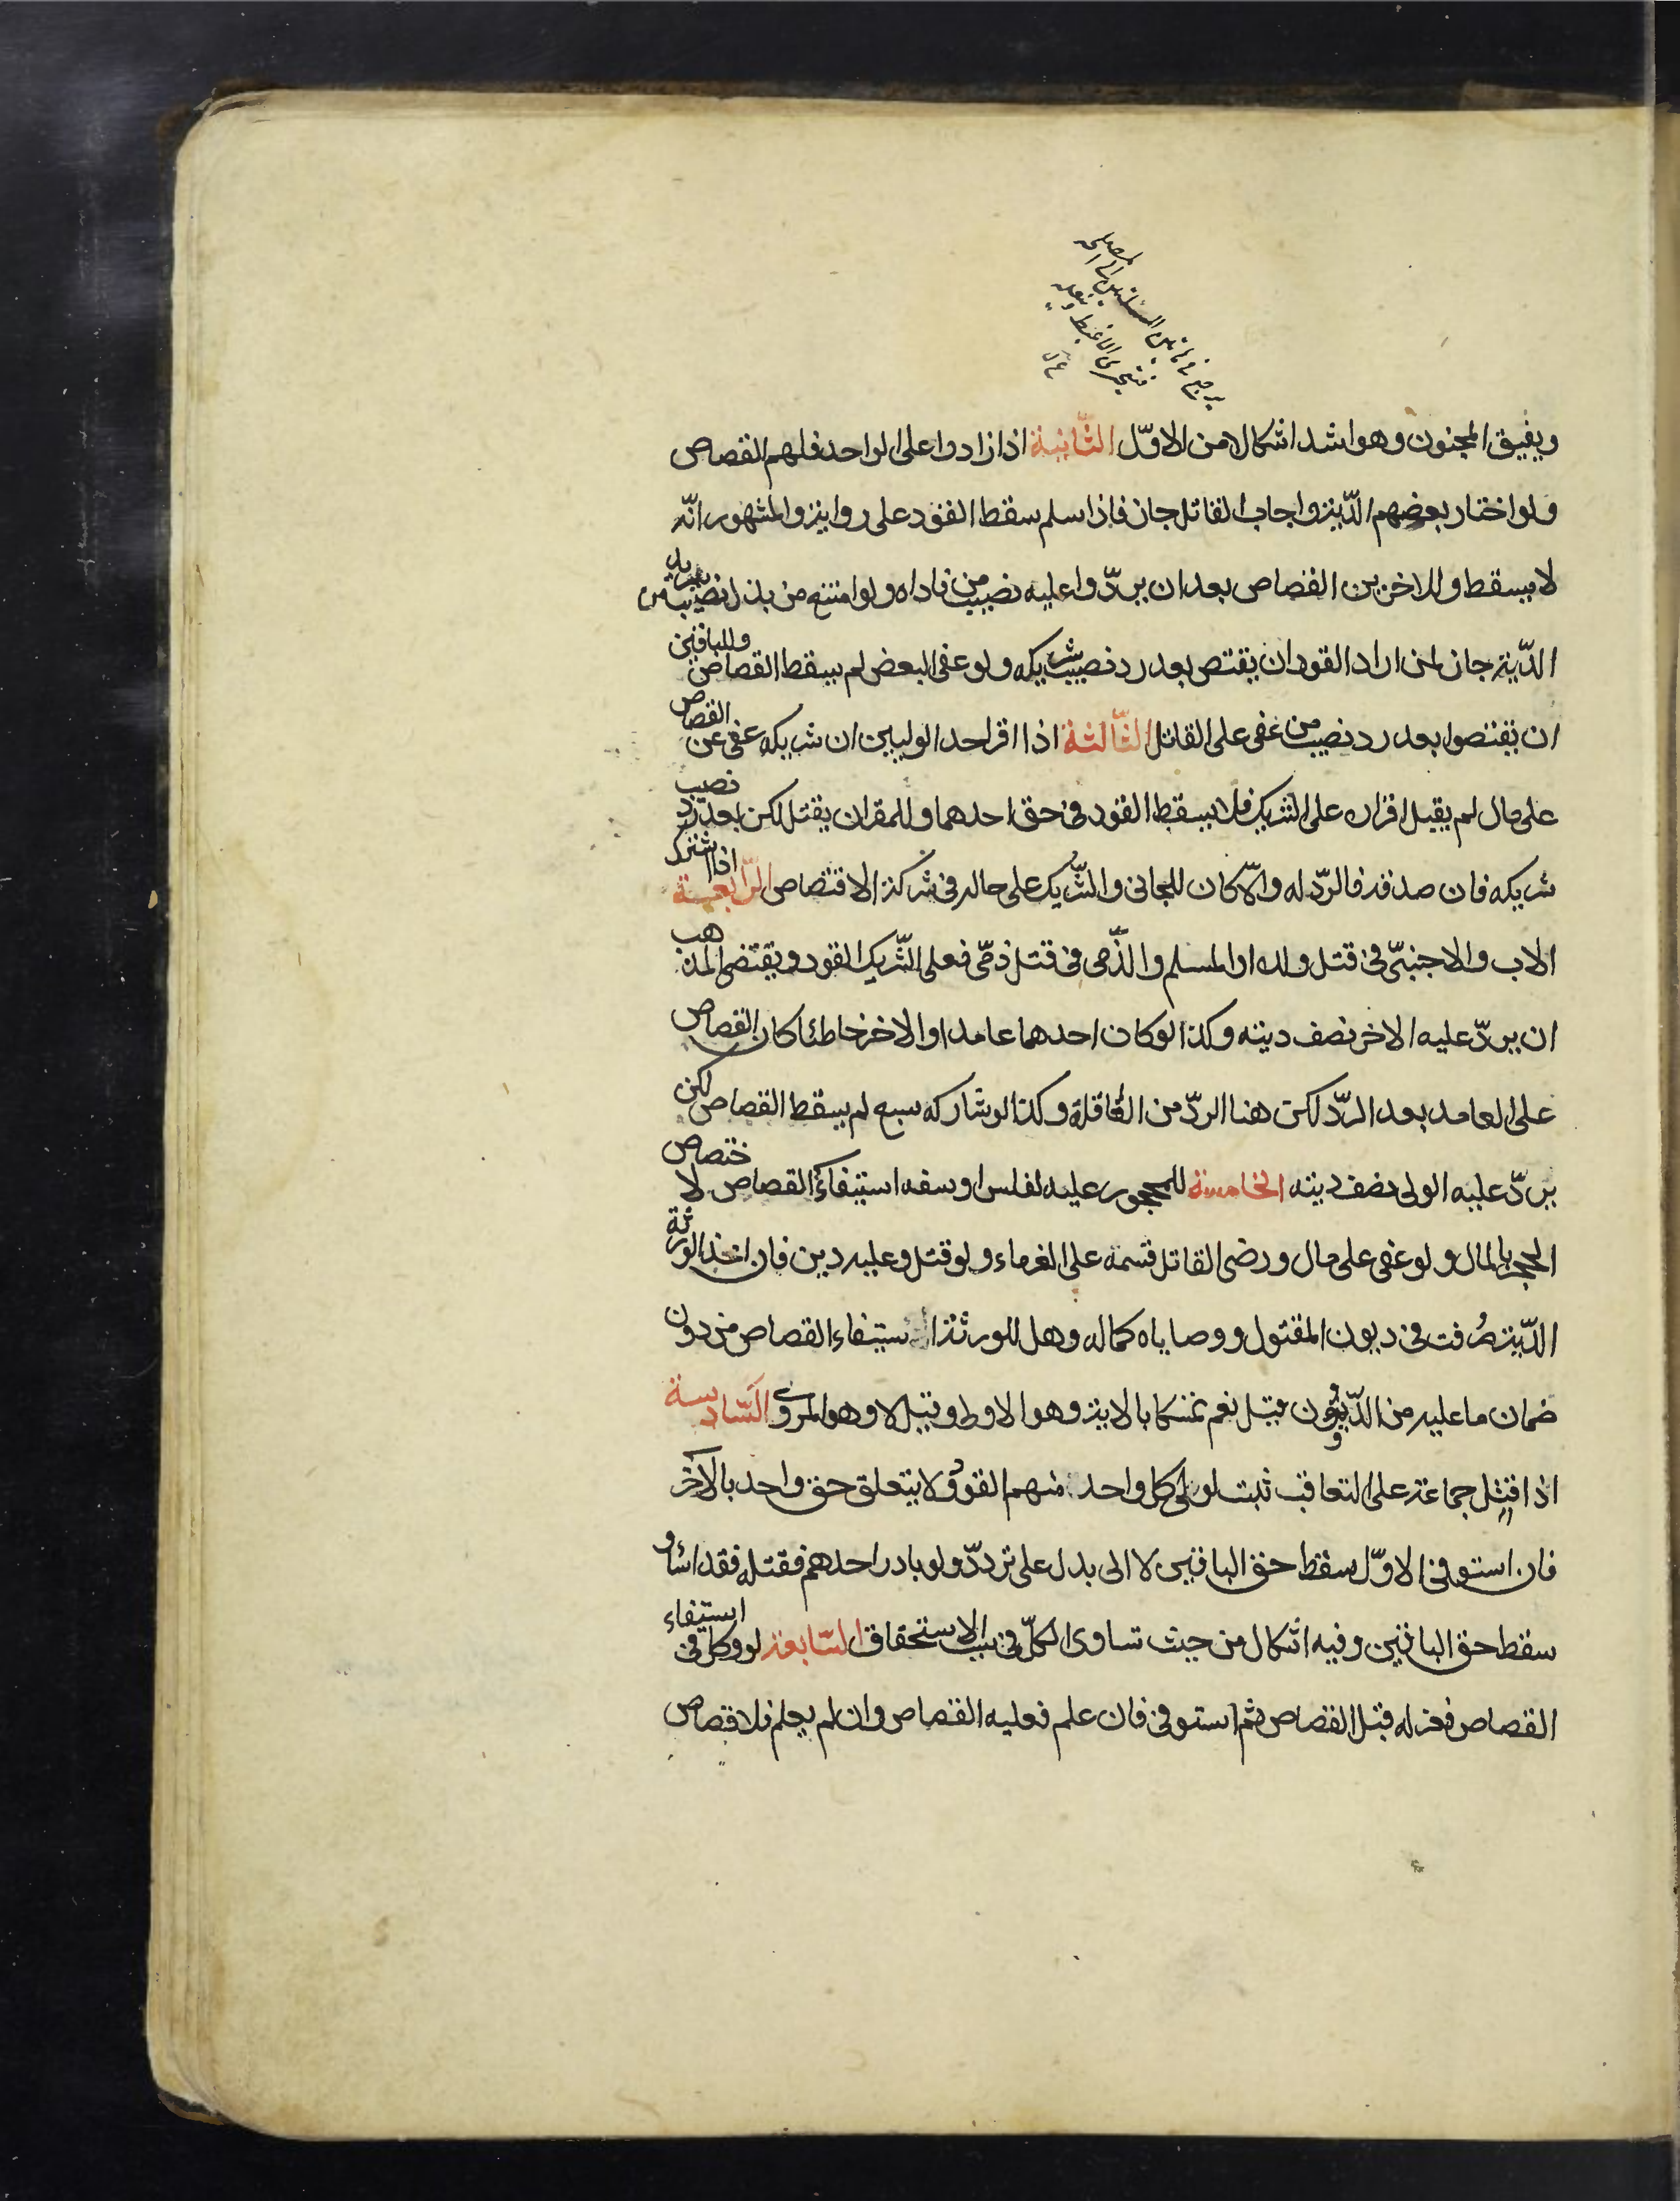 ويفيق المجنون وهو اشد اشكالا من الاوّل الثّانية اذا زادوا على الواحد فلهم القصاص
ولو اختار بعضهم الدّية واجاب القاتل جاز فاذا سلم سقط القود على رواية والمشهور انّه
لا يسقط وللاخرين القصاص بعد ان يردّوا عليه نصيب من فاداه ولو امتنع من بذل نصيب من يريد
الدّية جاز لمن اراد القود ان يقتص بعد رد نصيب شريكه ولو عفى البعض لم يسقط القصاص وللباقين
ان يقتصوا بعد رد نصيب من عفى على القاتل الثّالثة اذا اقر احد الوليين ان شريكه عفى عن القصاص
على مال لم يقبل اقراره على الشريك فلا يسقط القود فى حق احدهما وللمقر ان يقتل لكن بعد رد نصيب
شريكه فان صدقه فالردّ له والّا كان للجانى والشّريك على حاله فى شركة الاقتصاص الرّابعة اذا اشترك
الاب والاجنبىّ فى قتل ولده او المسلم والذّمى فى قتل ذمّى فعلى الشّريك القود ويقتضى المذهب
ان يردّ عليه الاخر نصف ديته وكذا لو كان احدهما عامدا والاخر خاطئا كان القصاص
على العامد بعد الردّ لكن هنا الردّ من العاقلة وكذا لو شاركه سبع لم يسقط القصاص لكن
يردّ عليه الولى نصف ديته الخامسة للمحجور عليه لفلس او سفه استيفاء القصاص لا ختصاص
الحجر بالمال ولو عفى على مال ورضى القاتل قسمه على الغرماء ولو قتل وعليه دين فان اخذ الورثة
الدّية صُرفت فى ديون المقتول ووصاياه كماله وهل للورثة استيفاء القصاص من دون
ضمان ما عليه من الدّيون قيل نعم تمسّكا بالاية وهو الاولى وقيل لا وهو المروى السّادسة
اذا قتل جماعة على التعاقب ثبت لولى كل واحد منهم القود ولا يتعلق حق واحد بالآخر
فان استوفى الاوّل سقط حق الباقين لا الى بدل على تردّد ولو بادر احدهم فقتله فقد اساء و
سقط حق الباقين وفيه اشكال من حيث تساوى الكلّ فى سبب الاستحقاق السّابعة لو وكل فى استيفاء
القصاص فعزله قبل القصاص ثم استوفى فان علم فعليه القصاص وان لم يعلم فلا قصاص